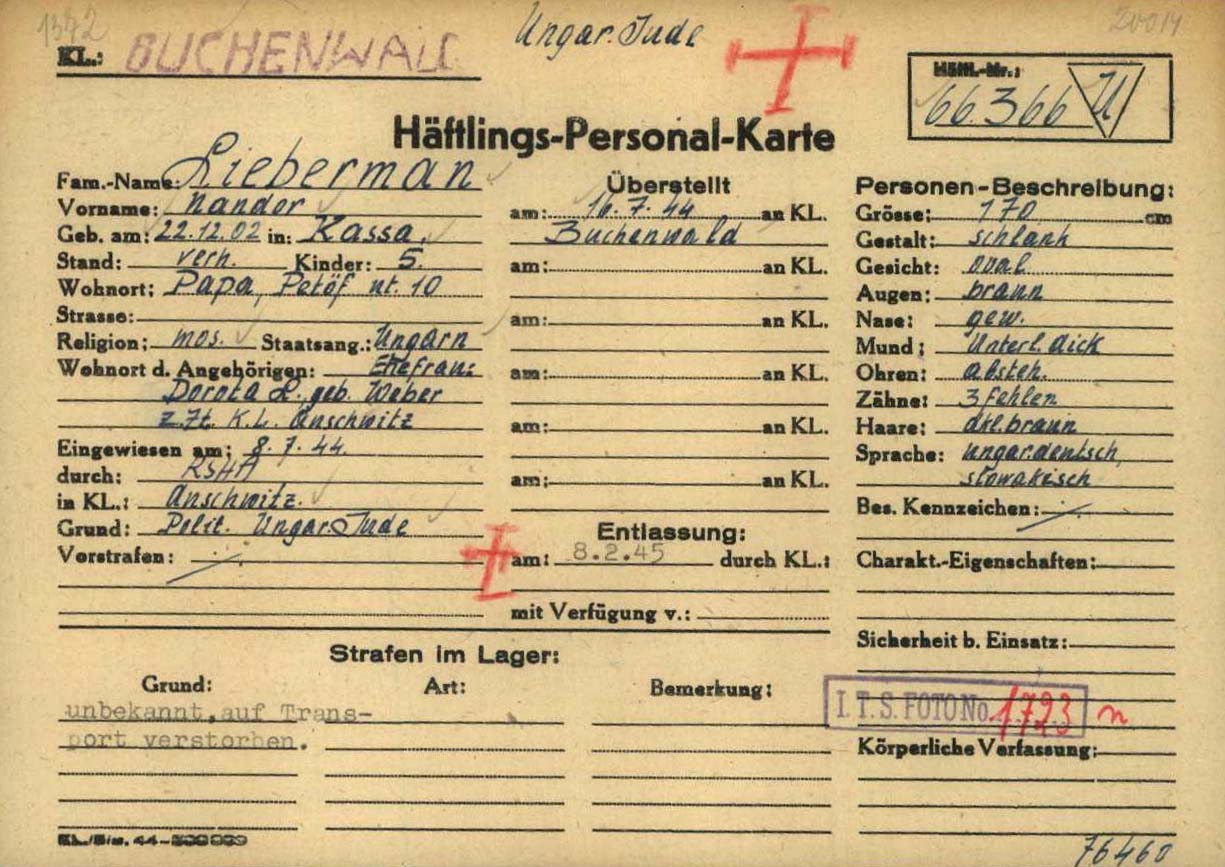 1342
Ungar. Jude
20014
KL.: BUCHENWALD
Häftl.-Nr.:
66.366 U
Häftlings-Personal-Karte
Fam.-Name: Lieberman
Vorname: Nandor
Geb. am: 22.12.02 in: Kassa.
Stand: verh. Kinder: 5.
Wohnort: Papa, Petöf ut. 10
Strasse:
Religion: mos. Staatsang.: Ungarn
Wohnort d. Angehörigen: Ehefrau:
Dorota L. geb. Weber
z. Zt. K.L. Auschwitz
Eingewiesen am: 8.7.44.
durch: RSHA
in KL.: Auschwitz.
Grund: Polit. Ungar. Jude
Vorstrafen: ./.
Überstellt
am: 16.7.44 an KL.
Buchenwald
am: an KL.
am: an KL.
am: an KL.
am: an KL.
am: an KL.
Entlassung:
am: 8.2.45 durch KL.:
mit Verfügung v.:
Personen-Beschreibung:
Grösse: 170 cm
Gestalt: schlank
Gesicht: oval
Augen: braun
Nase: gew.
Mund: Unterl. dick
Ohren: absteh.
Zähne: 3 fehlen
Haare: dkl. braun
Sprache: ungar. deutsch,
slowakisch
Bes. Kennzeichen: ./.
Charakt.-Eigenschaften:
Sicherheit b. Einsatz:
I.T.S. FOTO No. 1723 n
Körperliche Verfassung:
Strafen im Lager:
Grund: Art: Bemerkung:
unbekannt, auf Trans-
port verstorben.
76460